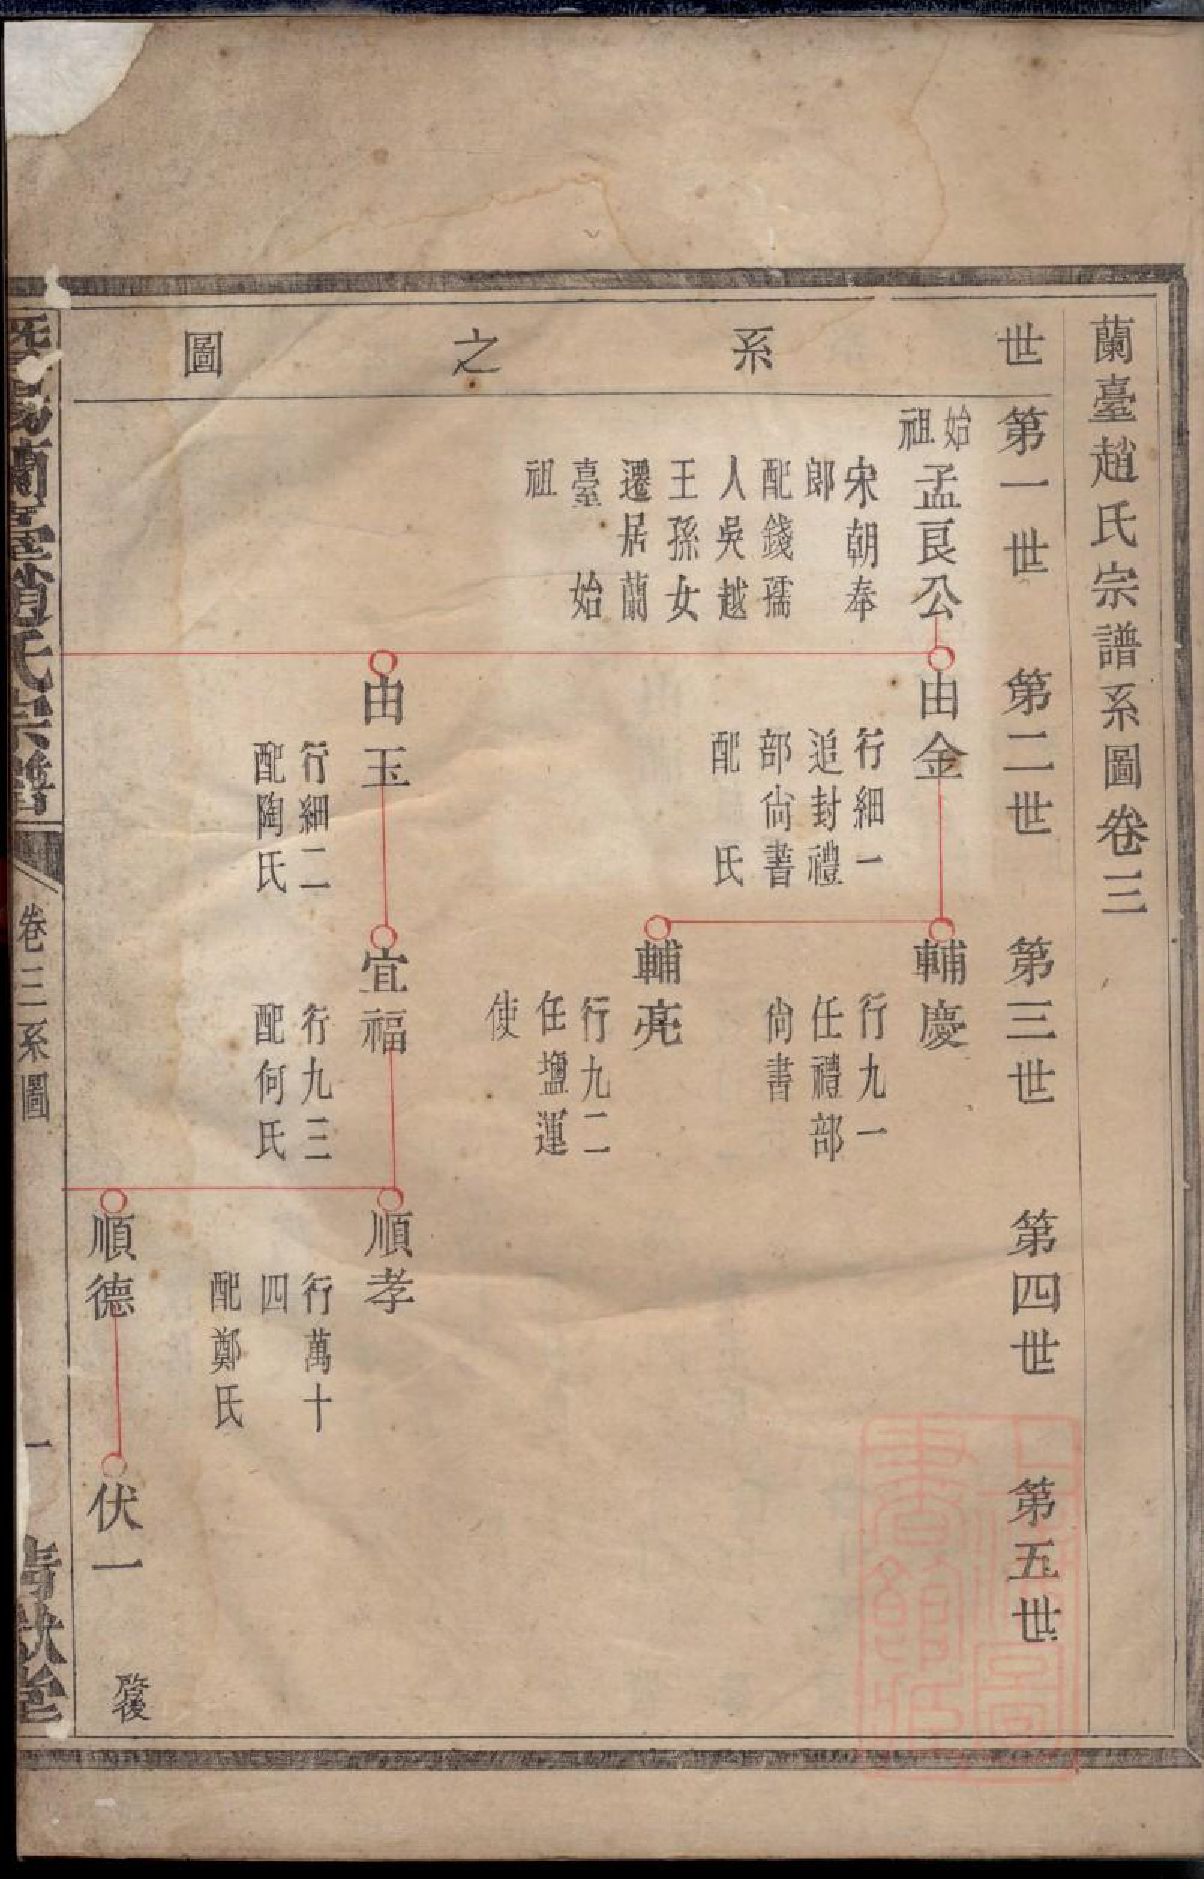 蘭臺趙氏宗譜系圖卷三
世系之圖
第一世
第二世
第三世
第四世
第五世
始祖
孟良公
宋朝奉
郎
配錢孺
人吳越
王孫女
遷居蘭
臺始
祖
由金
行細一
追封禮
部尙書
配氏
由玉
行細二
配陶氏
輔慶
行九一
任禮部
尙書
輔亮
行九二
任鹽運
使
宜福
行九三
配何氏
順孝
行萬十
四
配鄭氏
順德
伏一
啓後
暨陽蘭臺趙氏宗譜
卷三系圖
一
清獻堂
上海圖書館藏